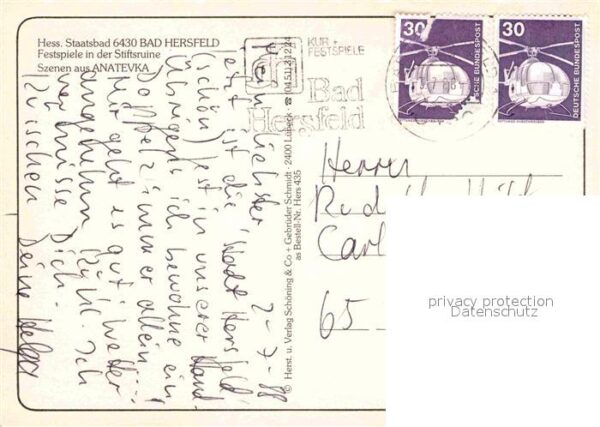 Hess. Staatsbad 6430 BAD HERSFELD
Festspiele in der Stiftsruine
Szenen aus ANATEVKA
KUR +
FESTSPIELE
Bad
Hersfeld
30
30
DEUTSCHE BUNDESPOST
DEUTSCHE BUNDESPOST
© Herst. u. Verlag Schöning & Co + Gebrüder Schmidt · 2400 Lübeck · ☎ (0451) 31224
as Bestell-Nr. Hers 435
2-7-88
jetzt ist die Stadt Hersfeld
(schön) fest in unserer Hand
Übrigens ich bewohne ein
Doppelzimmer allein.
Mir geht es gut. Wetter
angenehm kühl. Ich
vermisse Dich.
zwischen Deine Helga
Herrn
Carl
65
privacy protection
Datenschutz